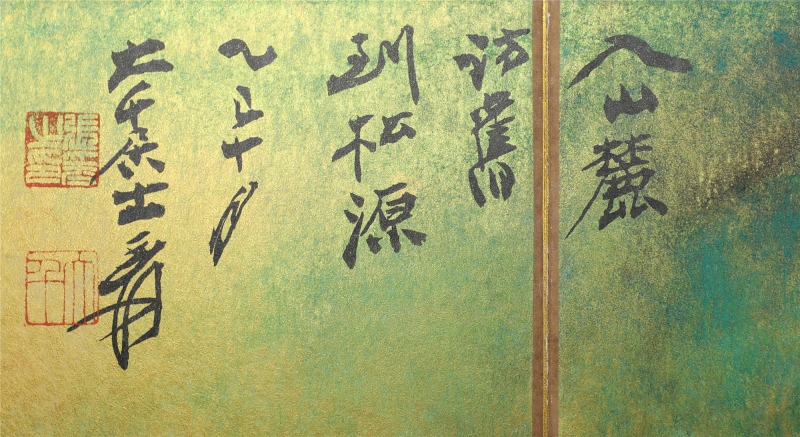 入山麓
訪舊
到松源
乙巳十月
大千居士爰
張爰之印
大千